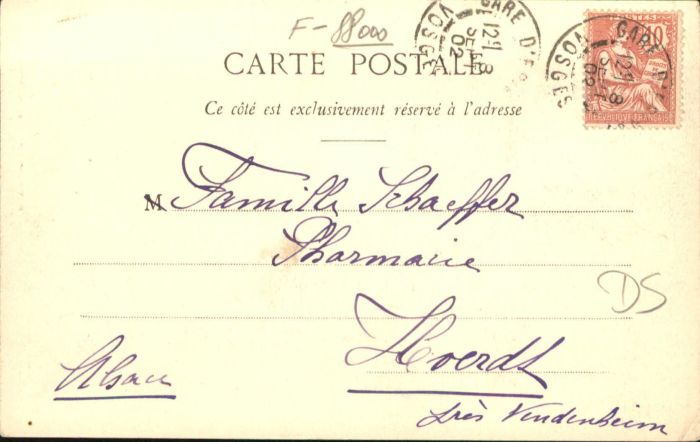 F-88000
CARTE POSTALE
Ce côté est exclusivement réservé à l'adresse
GARE D'E
VOSGES
12 8
SEPT
02
GARE D'E
VOSGES
12 8
02
POSTES
10
REPUBLIQUE FRANÇAISE
M Famille Schaeffer
Pharmacie
DS
Hoerdt
Alsace
près Vendenheim